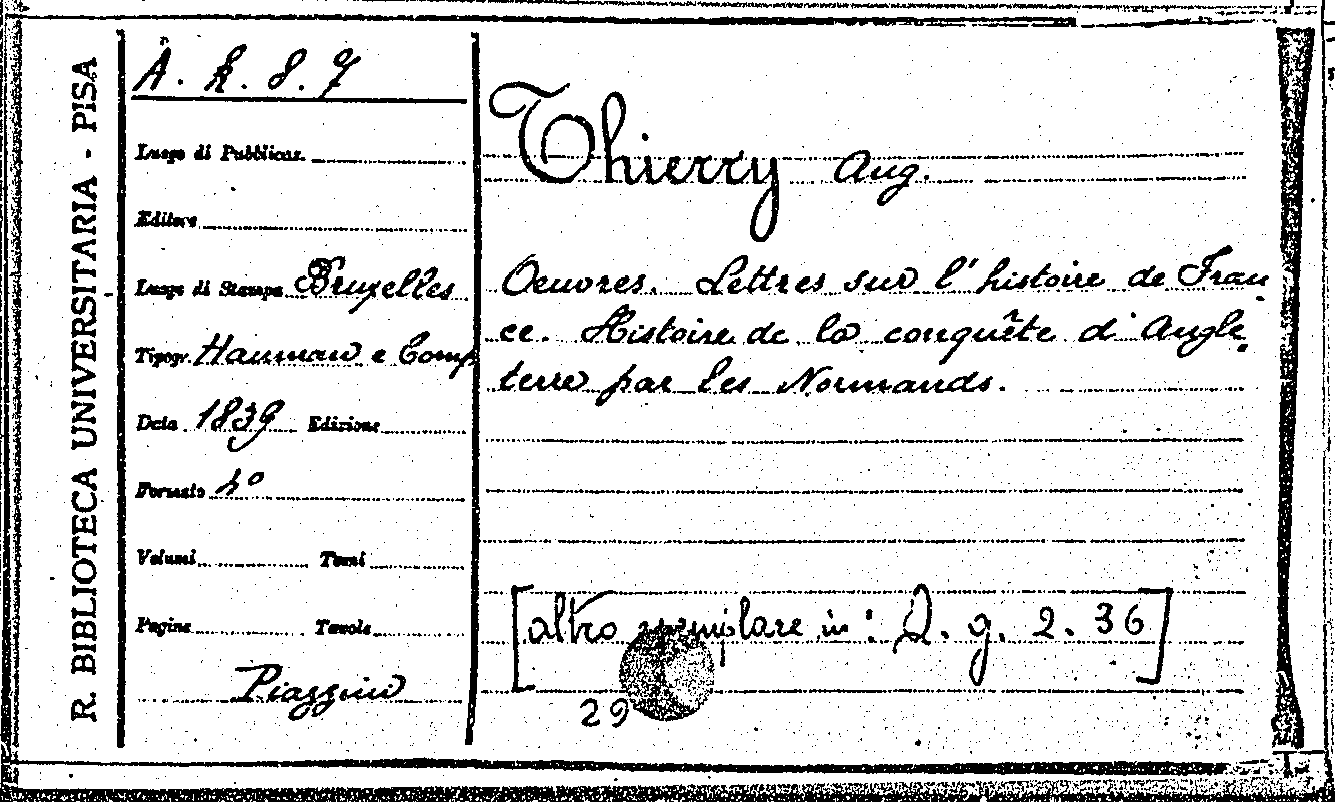 R. BIBLIOTECA UNIVERSITARIA - PISA
A. k. 8. 7
Luogo di Pubblicaz.
Editore
Luogo di Stampa Bruxelles
Tipogr. Hauman e Comp
Data 1839 Edizione
Formato 4°
Volumi Tomi
Pagine Tavole
Piazzini
Thierry Aug.
Oeuvres. Lettres sur l'histoire de Fran
ce. Histoire de la conquête d'Angle
terre par les Normands.
[altro esemplare in: Q. g. 2. 36]
29